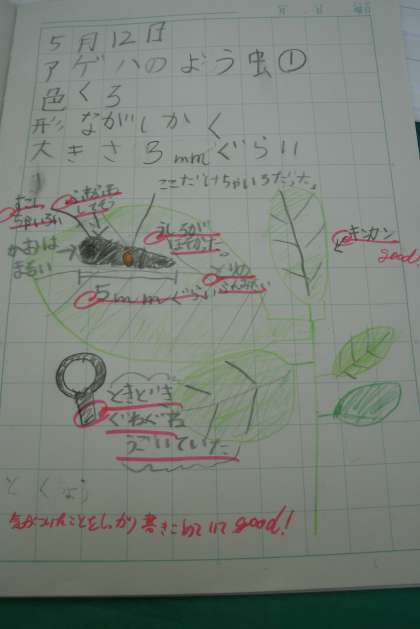 5月12日
アゲハのよう虫①
色くろ
形ながしかく
大きさ3mmぐらい
ここだけちゃいろだった。
すこし
ちゃいろい
かおは
まるい
うしろが
ほそかった。
とりの
ふんみたい
5mmぐらい
キンカン
good!
ときどき
ぐねぐね
うごいていた
とくちょう
気がついたことをしっかり書きこめていてgood!